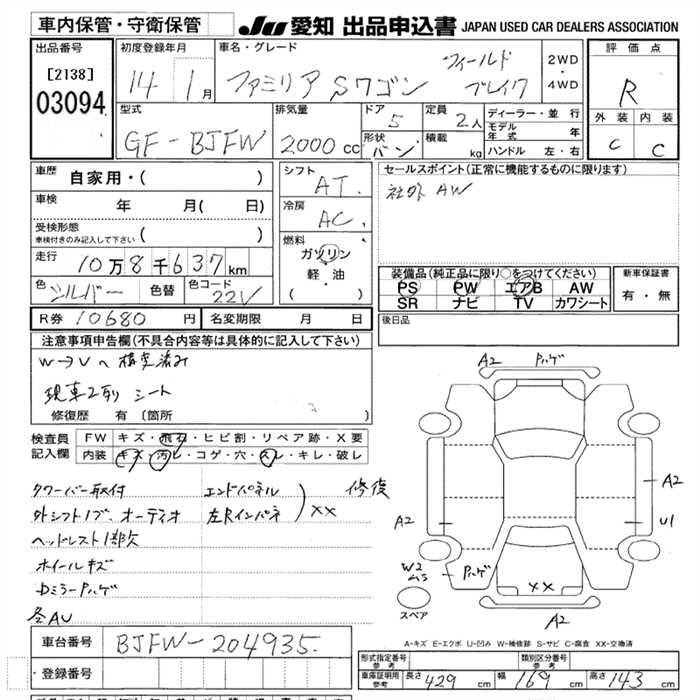 車内保管・守衛保管 JU 愛知 出品申込書 JAPAN USED CAR DEALERS ASSOCIATION
出品番号 [2138] 03094
初度登録年月 14 1月
車名・グレード ファミリア Sワゴン フィールド ブレイク
2WD・4WD
評価点 R
外装 内装
C C
型式 GF-BJFW
排気量 2000cc
ドア 5
形状 バン
定員 2人
積載 kg
ディーラー・並行
モデル年式 年
ハンドル 左・右
車歴 自家用・( )
車検 年 月( 日)
受検形態 車検付きのみ記入して下さい ( )
走行 10万8千637km
色 シルバー 色替 色コード 22V
シフト AT.
冷房 AC.
燃料 ガソリン・軽・油 ( )
セールスポイント(正常に機能するものに限ります)
社外 AW
装備品(純正品に限り○をつけてください)
PS PW エアB AW
SR ナビ TV カワシート
新車保証書 有・無
R券 10680円 名変期限 月 日
後日品
注意事項申告欄(不具合内容等は具体的に記入して下さい)
W→Vへ構変済み
現車2名 シート
修復歴 有 〔箇所
検査員記入欄
FW キズ・飛石・ヒビ割・リペア跡・X要
内装 キズ・汚レ・コゲ・穴・スレ・キレ・破レ
タワーバー取付 エンドパネル 修復
外シフトノブ、オーディオ 左Rインパネ XX
ヘッドレスト1部欠
ホイールキズ
Dミラーハゲ
冬AU
A2 ハゲ
A2
A2
U1
W2
ハゲ
XX
A2
スペア
A-キズ E-エクボ U-凹み W-補修跡 S-サビ C-腐食 XX-交換済
車台番号 BJFW-204935.
登録番号
形式指定番号 参考 類別区分番号 参考
車庫証明用 参考 長さ 429cm 幅 169cm 高さ 143cm